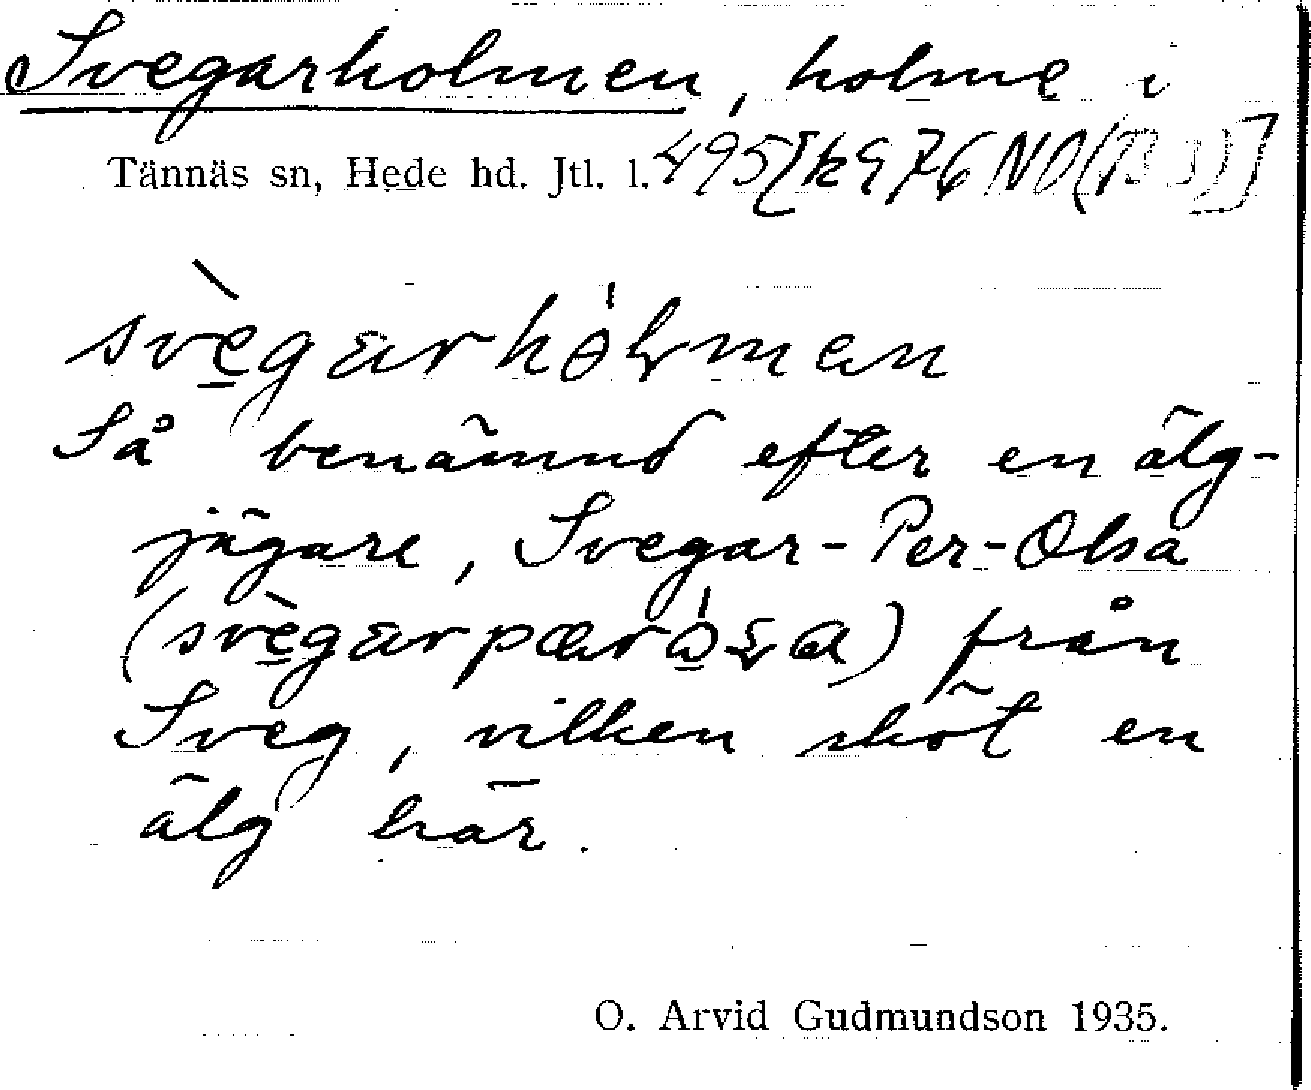 Svegarholmen, holme i
Tännäs sn, Hede hd. Jtl. l. 495[k976NO(B3)]
svègarhólman
Så benämnd efter en älg-
jägare, Svegar-Per-Olsa
(svègarpæró̱ʂa) från
Sveg, vilken sköt en
älg här.
O. Arvid Gudmundson 1935.